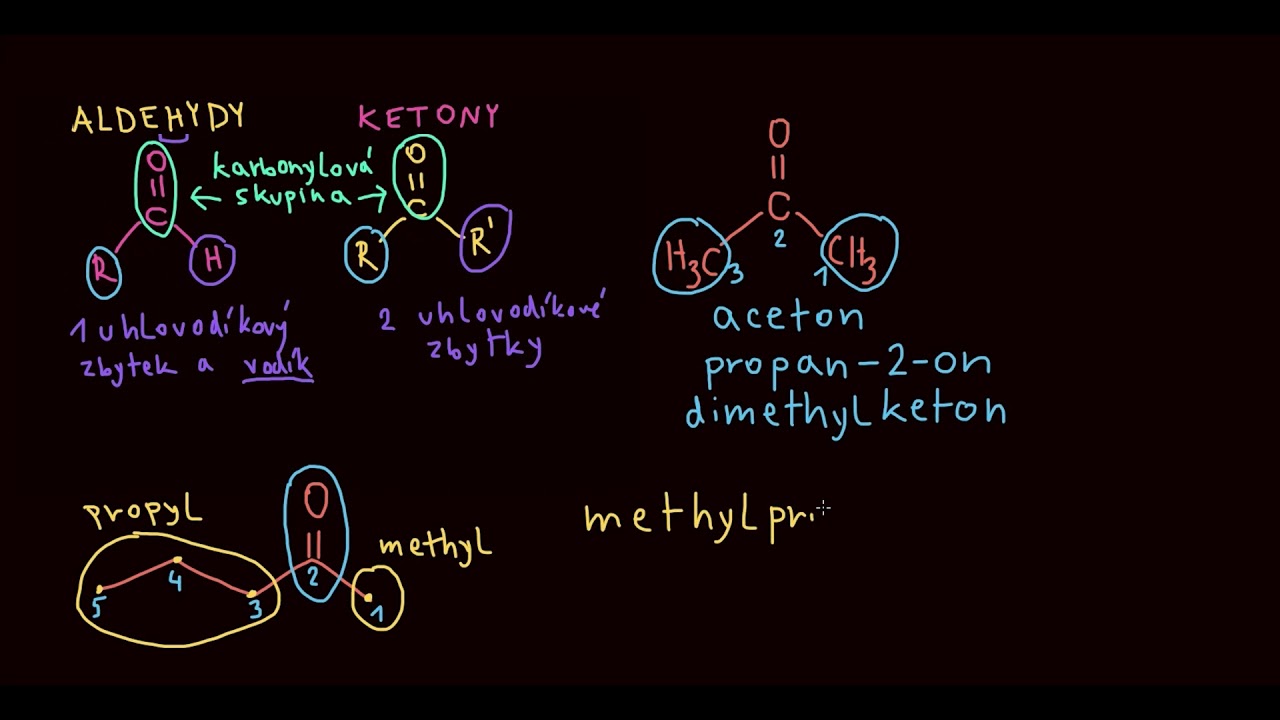 ALDEHYDY
KETONY
O
C
R
H
karbonylová
skupina
O
C
R
R'
1 uhlovodíkový
zbytek a vodík
2 uhlovodíkové
zbytky
O
C
2
H3C
3
CH3
1
aceton
propan-2-on
dimethylketon
propyl
O
methyl
5
4
3
2
1
methylpr